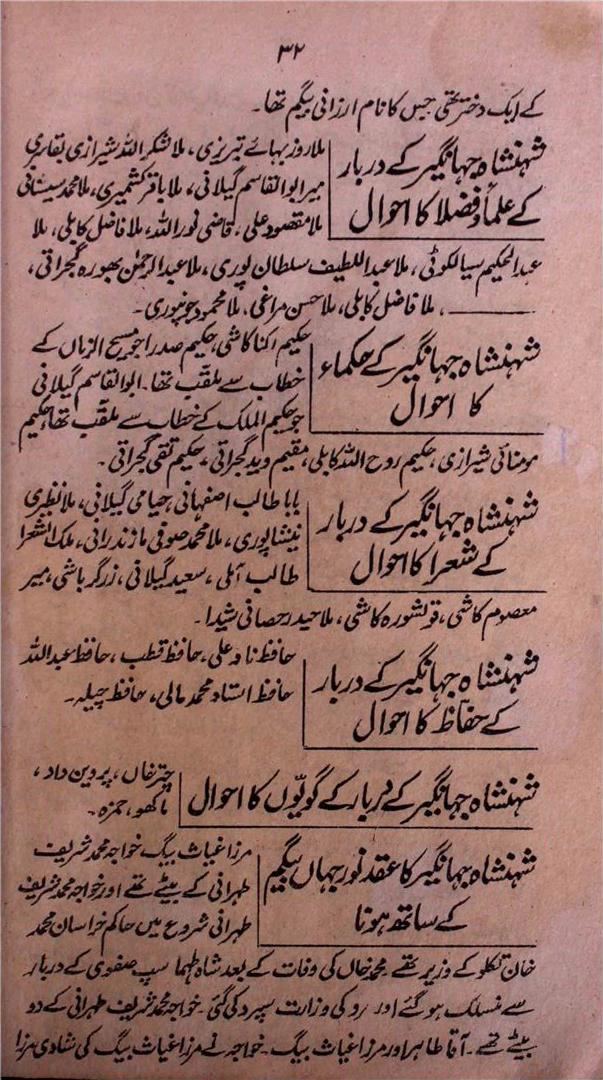 ۳۲
کے ایک دختر تھی جس کا نام ارزانی بیگم تھا۔
شہنشاہ جہانگیر کے دربار
کے علماء و فضلا کا احوال
ملا روز بہائے تبریزی، ملا شکر اللہ شیرازی
میر ابوالقاسم گیلانی، ملا باقر کشمیری، ملا محمد سیستانی
ملا مقصود علی، قاضی نور اللہ، ملا فاضل کابلی، ملا
عبدالحکیم سیالکوٹی، ملا عبداللطیف سلطان پوری، ملا عبدالرحمٰن بھورہ گجراتی،
، ملا فاضل کابلی، ملا حسن مراغی، ملا محمود جونپوری۔
شہنشاہ جہانگیر کے حکماء
کا احوال
حکیم رکنا کاشی، حکیم صدرا جو مسیح الزماں کے
خطاب سے ملقب تھا۔ ابوالقاسم گیلانی
جو حکیم الملک کے خطاب سے ملقب تھا، حکیم
مومنائی شیرازی، حکیم روح اللہ کابلی، مقیم وید گجراتی، حکیم تقی گجراتی۔
شہنشاہ جہانگیر کے دربار
کے شعرا کا احوال
بابا طالب اصفہانی، حیاتی گیلانی، ملا نظیری
نیشاپوری، ملا محمد صوفی ماژندرانی، ملک الشعرا
طالب آملی، سعید گیلانی، زرگر باشی، میر
معصوم کاشی، کاشی، ملا حیدر شیدا۔
شہنشاہ جہانگیر کے دربار
کے حفاظ کا احوال
حافظ ناد علی، حافظ قطب، حافظ عبداللہ
حافظ استاد محمد مالی، حافظ چیلہ۔
شہنشاہ جہانگیر کے دربار کے گویّوں کا احوال
چتر خاں، پروین داد،
ماکھو، حمزہ۔
شہنشاہ جہانگیر کا عقد نور جہاں بیگم
کے ساتھ ہونا
مرزا غیاث بیگ خواجہ محمد شریف
طہرانی کے بیٹے تھے اور خواجہ محمد شریف
طہرانی شروع میں حاکم خراسان محمد
خان تکلو کے وزیر تھے۔ محمد خاں کی وفات کے بعد شاہ طہماسپ صفوی کے دربار
سے منسلک ہو گئے اور رو کی وزارت سپرد کی گئی۔ خواجہ محمد شریف طہرانی کے دو
بیٹے تھے۔ آقا طاہر اور مرزا غیاث بیگ۔ خواجہ نے مرزا غیاث بیگ کی شادی مرزا